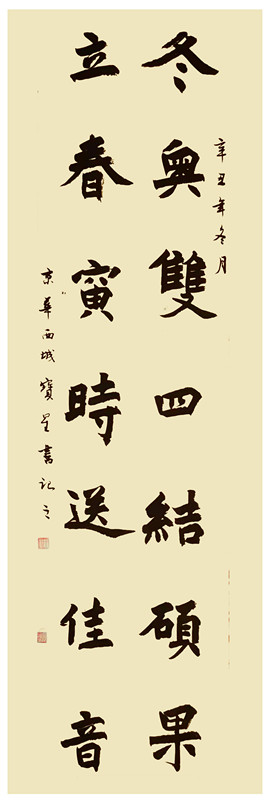 辛丑年冬月
冬奥雙四結碩果
立春寅時送佳音
京華西城寶星書記之